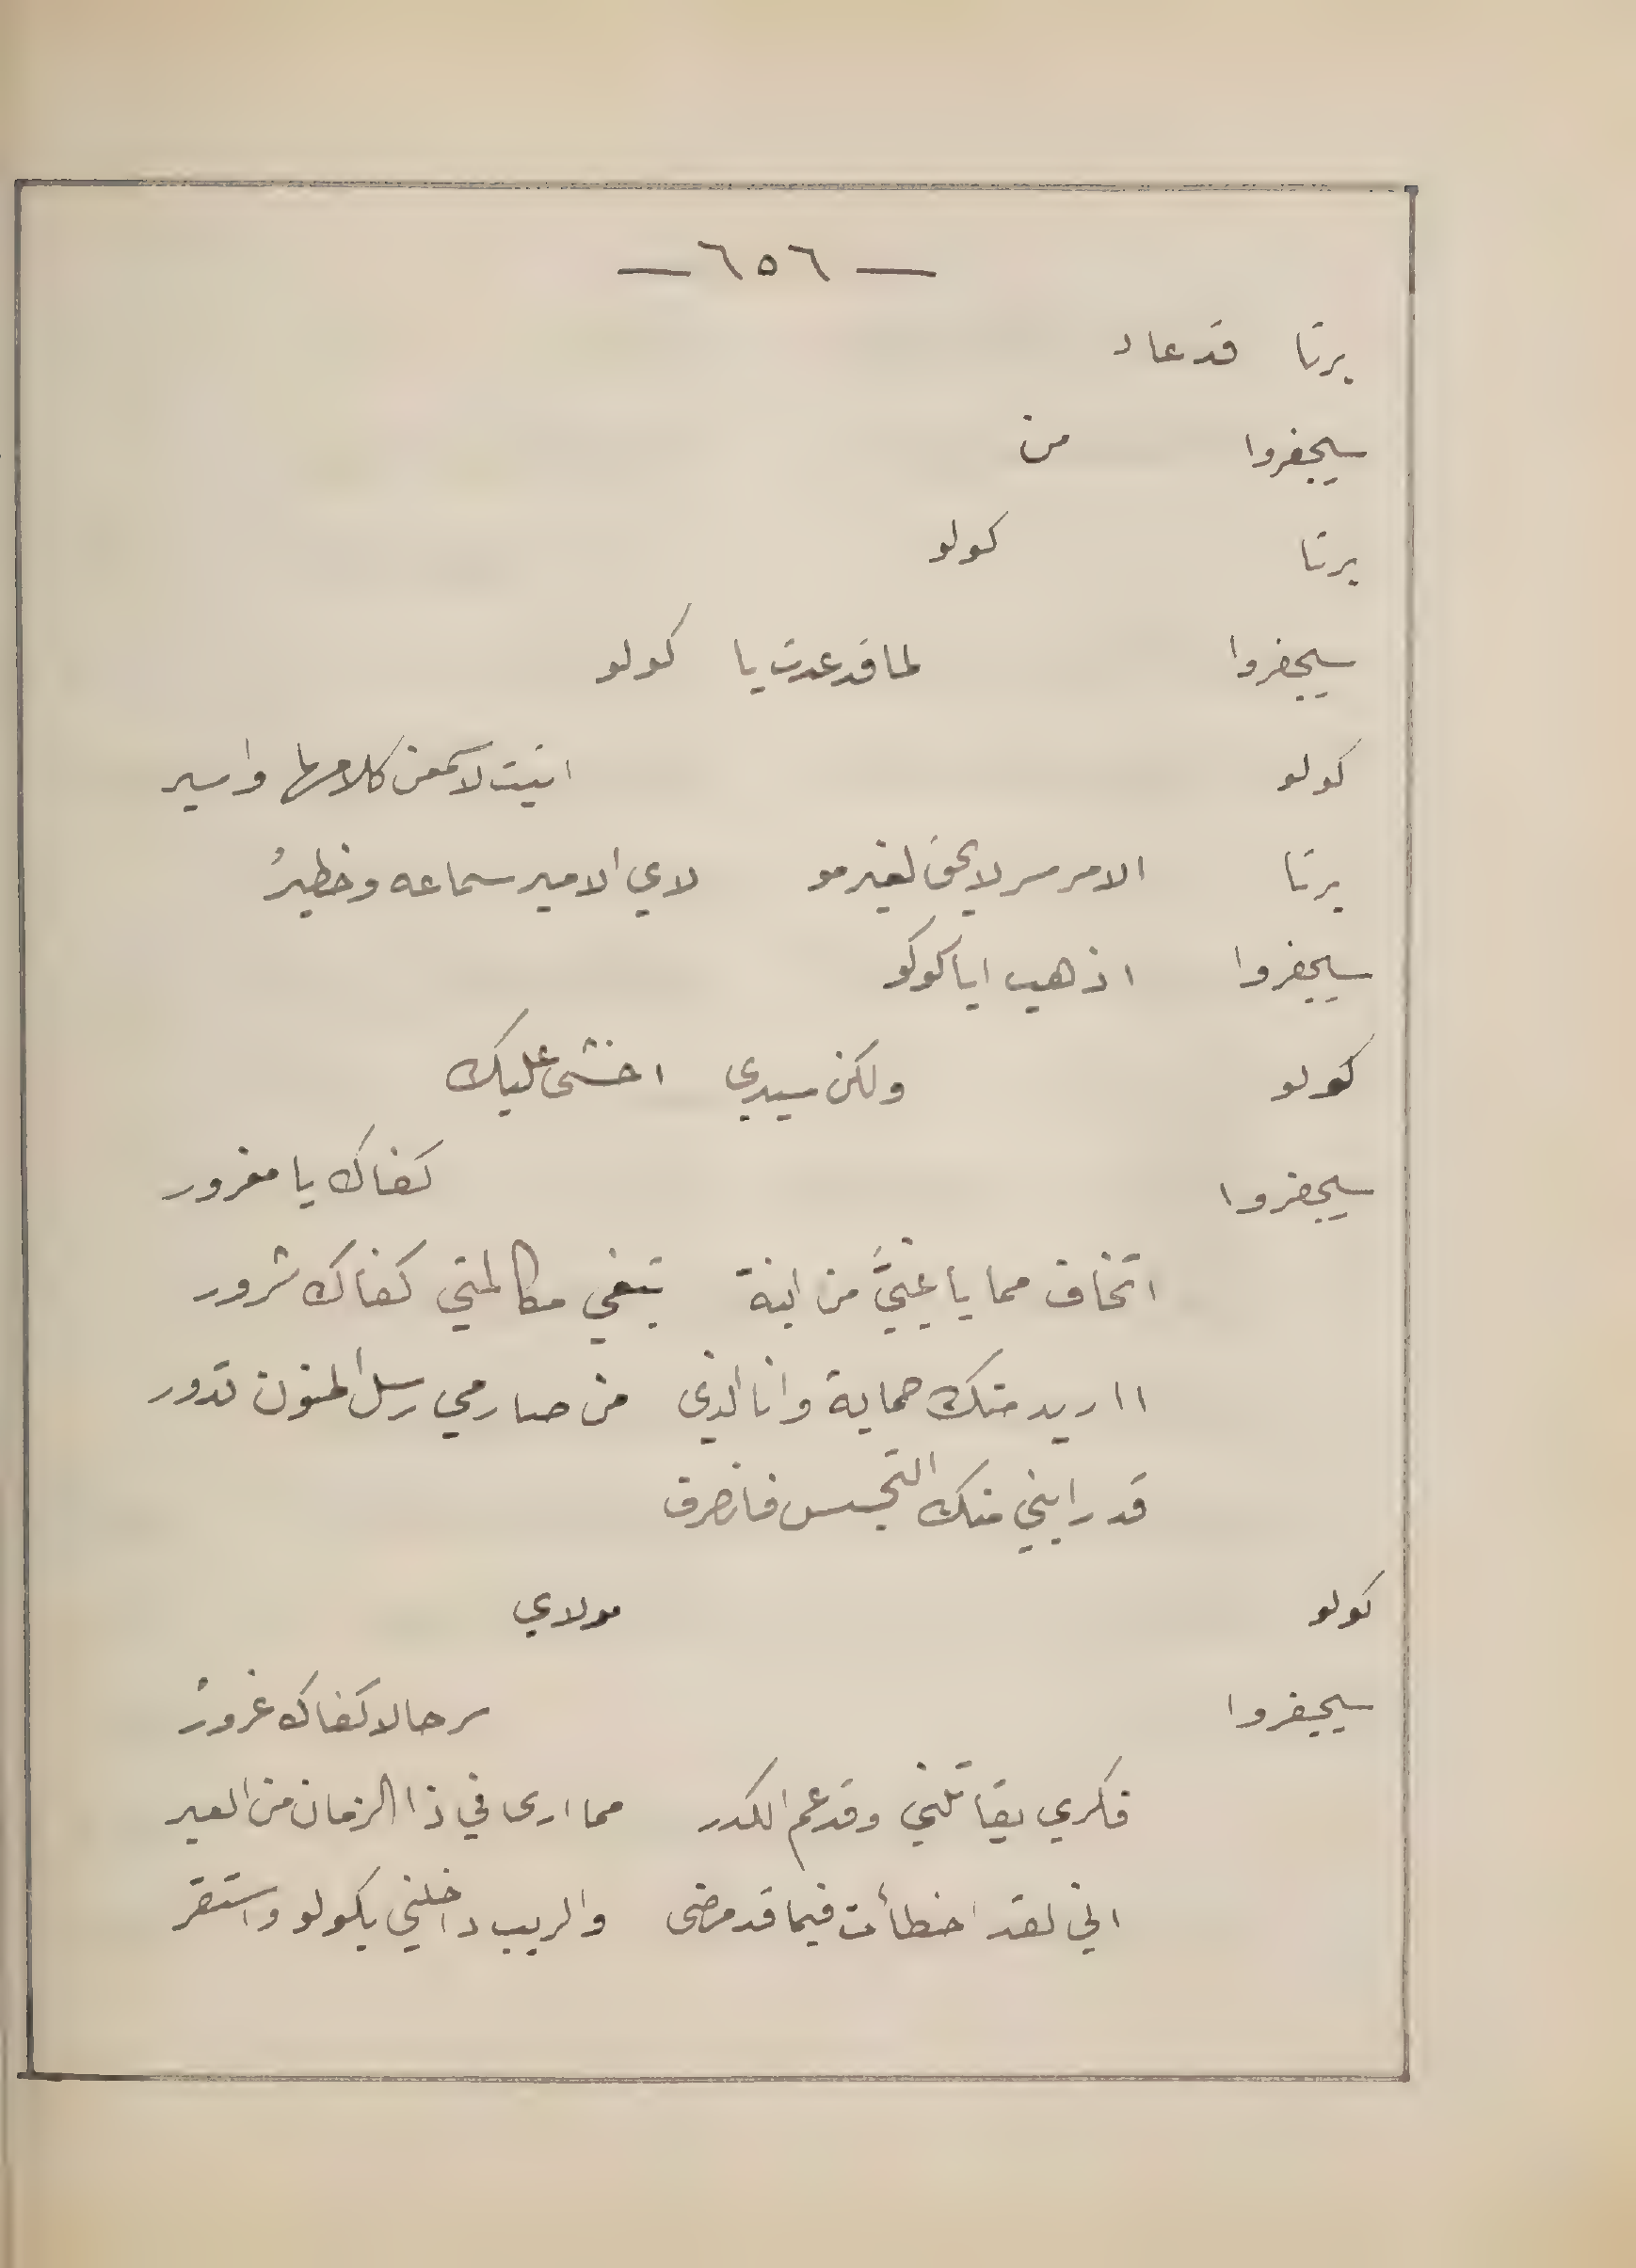 — ٦٥٦ —
برتا قد عاد
سيجفروا من
برتا كولو
سيجفروا لما قد عدت يا كولو
كولو اتيت لاسمعن كلامها واسير
برتا الامر سر لا يحق لغير مو لاي الامير سماعه وخطيرُ
سيجفروا اذهب ايا كولو
كولو ولكن سيدي اخشى عليك
سيجفروا كفاك يا مغرور
اتخاف مما يا غبيَّ من ابنة تبغي مكالمتي كفاك شرور
ااريد منك حماية وانا الذي من صارمي رسل المنون تدور
قد رابني منك التجسس فانصرف
كولو مولاي
سيجفروا سر حالا كفاك غرورُ
فكري يقاتلني وقد عم الكدر مما ارى في ذا الزمان من العبر
اني لقد اخطأت فيما قد مضى والريب داخلني بكولو واستقر